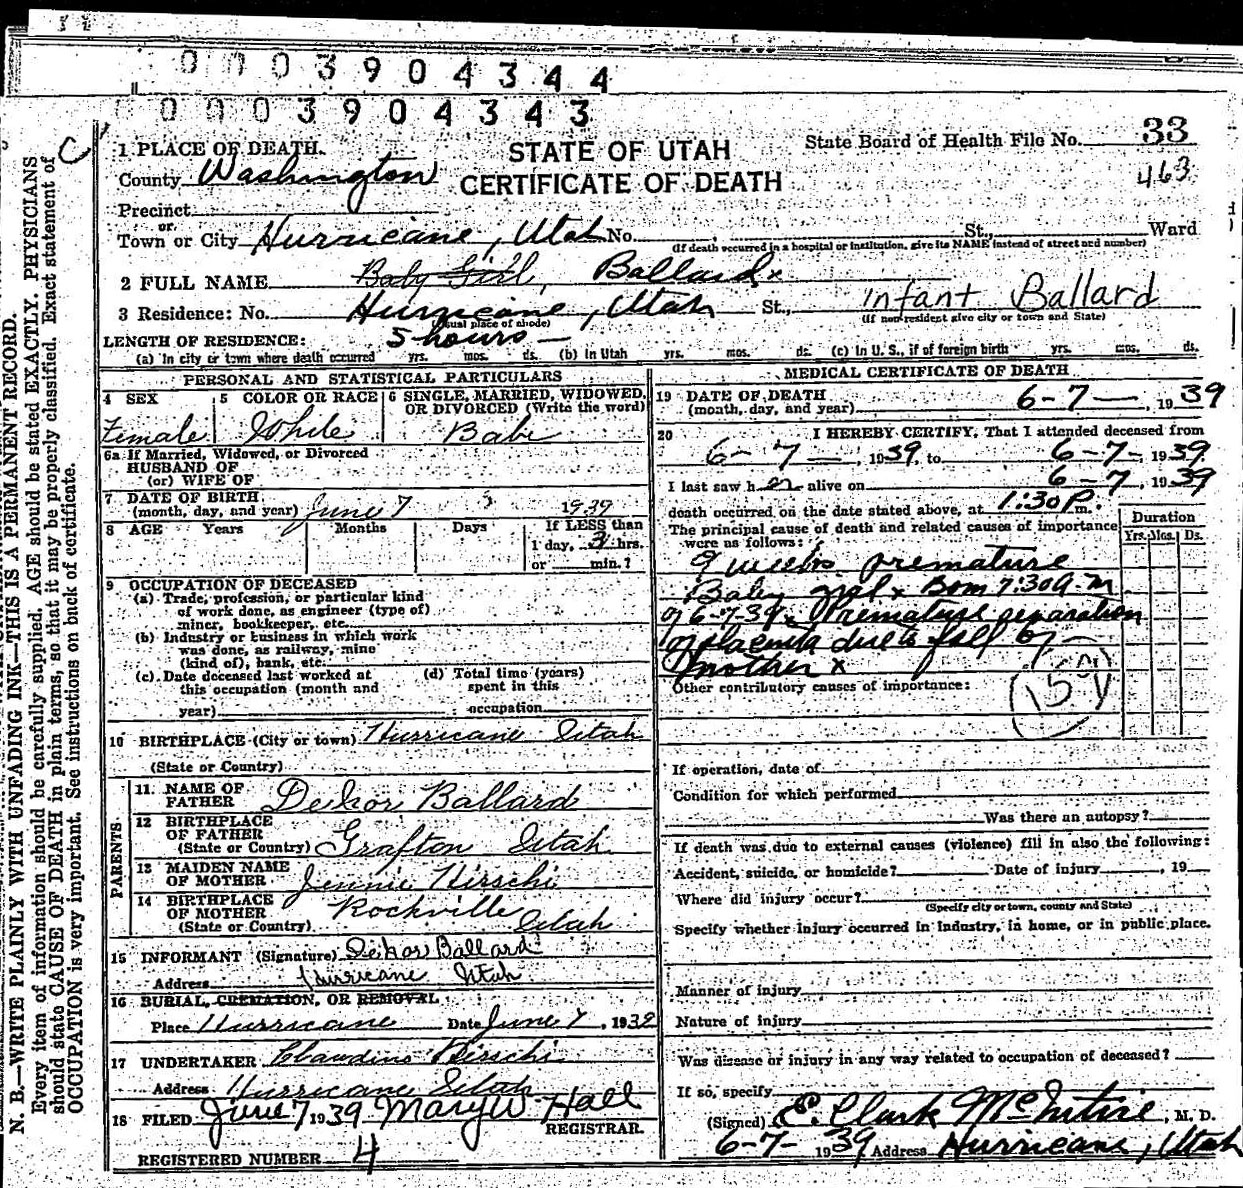 0003904344
0003904343
C
1 PLACE OF DEATH.
STATE OF UTAH
State Board of Health File No. 33
County Washington
CERTIFICATE OF DEATH
463
Precinct
or
Town or City Hurricane, Utah No. St., Ward
(If death occurred in a hospital or institution, give its NAME instead of street and number)
2 FULL NAME Baby Girl, Ballard x
infant Ballard
3 Residence: No. Hurricane, Utah St.,
(Usual place of abode) (If non-resident give city or town and State)
LENGTH OF RESIDENCE: 5 hours —
(a) In city or town where death occurred yrs. mos. ds. (b) In Utah yrs. mos. ds. (c) In U. S., if of foreign birth yrs. mos. ds.
PERSONAL AND STATISTICAL PARTICULARS
4 SEX 5 COLOR OR RACE 6 SINGLE, MARRIED, WIDOWED, OR DIVORCED (Write the word)
Female White Babe
6a If Married, Widowed, or Divorced
HUSBAND OF
(or) WIFE OF
7 DATE OF BIRTH
(month, day, and year) June 7 1939
8 AGE Years Months Days If LESS than
1 day, 3 hrs.
or min.?
9 OCCUPATION OF DECEASED
(a) Trade, profession, or particular kind
of work done, as engineer (type of)
miner, bookkeeper, etc.
(b) Industry or business in which work
was done, as railway, mine
(kind of), bank, etc.
(c) Date deceased last worked at
this occupation (month and
year)
(d) Total time (years)
spent in this
occupation
10 BIRTHPLACE (City or town) Hurricane Utah
(State or Country)
PARENTS
11 NAME OF
FATHER Ballard
12 BIRTHPLACE
OF FATHER
(State or Country) Grafton Utah
13 MAIDEN NAME
OF MOTHER Jennie Hirschi
14 BIRTHPLACE
OF MOTHER Rockville
(State or Country) Utah
15 INFORMANT (Signature) Ballard
Address Hurricane Utah
16 BURIAL, CREMATION, OR REMOVAL
Place Hurricane Date June 7, 1939
17 UNDERTAKER Hirschi
Address Hurricane Utah
18 FILED June 7 1939 Mary W Hall
REGISTRAR.
REGISTERED NUMBER 4
MEDICAL CERTIFICATE OF DEATH
19 DATE OF DEATH
(month, day, and year) 6-7-, 1939
20 I HEREBY CERTIFY, That I attended deceased from
6-7-, 1939, to 6-7-, 1939.
I last saw her alive on 6-7, 1939
death occurred on the date stated above, at 1:30 P. m.
The principal cause of death and related causes of importance
were as follows:
Duration
Yrs. Mos. Ds.
9 weeks premature
Baby girl x Born 7:30 A.M
of 6-7-39. Premature separation
of placenta due to fall of —
mother x
Other contributory causes of importance:
If operation, date of
Condition for which performed
Was there an autopsy?
If death was due to external causes (violence) fill in also the following:
Accident, suicide, or homicide? Date of injury , 19
Where did injury occur?
(Specify city or town, county and State)
Specify whether injury occurred in industry, in home, or in public place.
Manner of injury
Nature of injury
Was disease or injury in any way related to occupation of deceased?
If so, specify
(Signed) E. Clark McIntire, M. D.
6-7- 1939 Address Hurricane, Utah
N. B.—WRITE PLAINLY WITH UNFADING INK—THIS IS A PERMANENT RECORD.
Every item of information should be carefully supplied. AGE should be stated EXACTLY. PHYSICIANS
should state CAUSE OF DEATH in plain terms, so that it may be properly classified. Exact statement of
OCCUPATION is very important. See instructions on back of certificate.